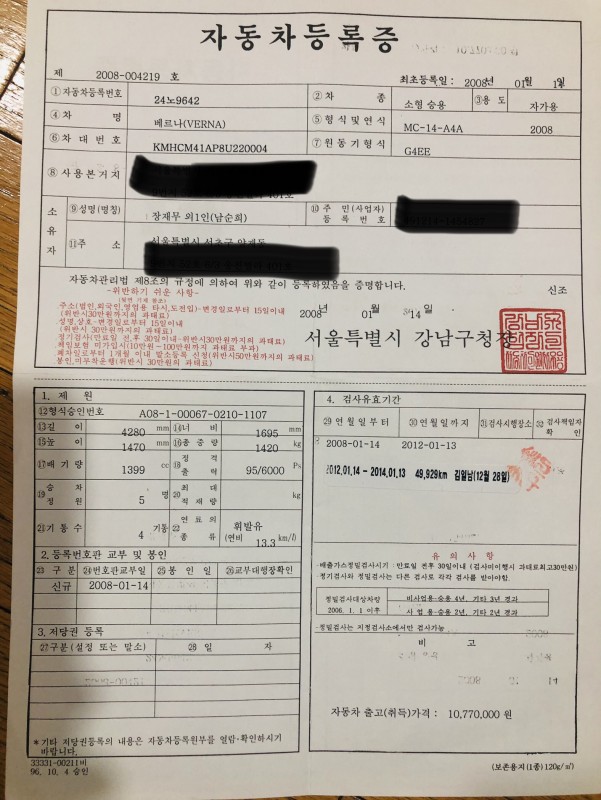 자동차등록증
제 2008-004219 호
최초등록일 : 2008년 01월 14일
①자동차등록번호 24노9642 ②차 종 소형 승용 ③용 도 자가용
④차 명 베르나(VERNA) ⑤형식 및 연식 MC-14-A4A 2008
⑥차 대 번 호 KMHCM41AP8U220004 ⑦원동기형식 G4EE
⑧사용본거지
소유자 ⑨성명(명칭) 장재무 외1인(남순희) ⑩주민(사업자)등록번호
⑪주 소 서울특별시 서초구
자동차관리법 제8조의 규정에 의하여 위와 같이 등록하였음을 증명합니다.
신조
-위반하기 쉬운 사항-
주소(법인,외국인,영업용 타시,도전입)-변경일로부터 15일이내
(위반시30만원까지의 과태료)
성명,상호-변경일로부터 15일이내
(위반시 30만원까지의 과태료)
정기검사(만료일 전후 30일이내-위반시30만원까지의 과태료)
책임보험 미가입시(10만원~100만원까지 과태료 부과)
폐차일로부터 1개월 이내 말소등록 신청(위반시50만원까지의 과태료)
봉인,미부착운행(위반시 30만원의 과태료)
2008 년 01 월 14 일
서울특별시 강남구청장
1. 제 원
⑫형식승인번호 A08-1-00067-0210-1107
⑬길 이 4280 mm ⑭너 비 1695 mm
⑮높 이 1470 mm ⑯총중량 1420 kg
⑰배 기 량 1399 cc ⑱정격출력 95/6000 Ps
⑲승차정원 5 명 ⑳최대적재량 kg
㉑기통수 4 기통 ㉒연료의종류 휘발유 (연비 13.3 km/ℓ)
2. 등록번호판 교부 및 봉인
㉓구 분 ㉔번호판교부일 ㉕봉 인 일 ㉖교부대행장확인
신규 2008-01-14
3. 저당권 등록
㉗구분(설정 또는 말소) ㉘일 자
*기타 저당권등록의 내용은 자동차등록원부를 열람·확인하시기 바랍니다.
33331-00211비
96. 10. 4 승인
4. 검사유효기간
㉙연 월 일 부 터 ㉚연 월 일 까 지 ㉛검사시행장소 ㉜검사책임자확인
2008-01-14 2012-01-13
2012.01.14 ~ 2014.01.13 49,929km 김열남(12월 28일)
유 의 사 항
·배출가스정밀검사시기 : 만료일 전후 30일이내 (검사미이행시 과태료최고30만원)
정기검사와 정밀검사는 다른 검사로 각각 검사를 받아야함.
정밀검사대상차량 2006. 1. 1 이후
비사업용-승용 4년, 기타 3년 경과
사 업 용-승용 2년, 기타 2년 경과
·정밀검사는 지정검사소에서만 검사가능
비 고
자동차 출고(취득)가격 : 10,770,000 원
(보존용지(1종) 120g/㎡)